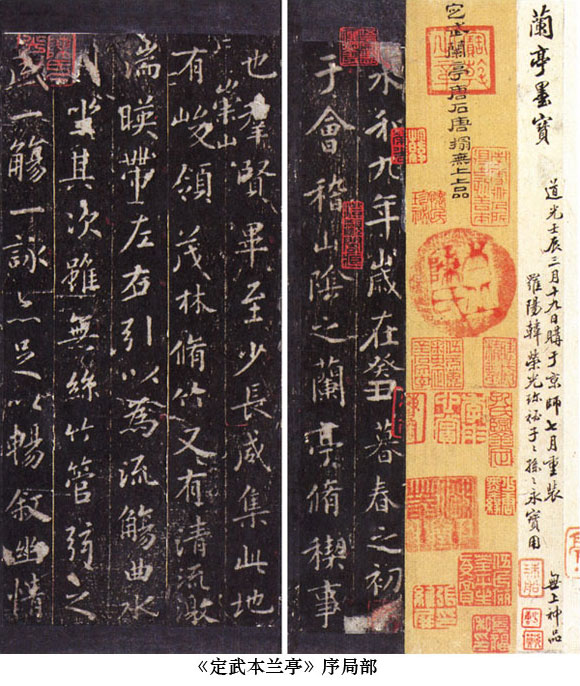 蘭亭墨寶
道光壬辰三月十九日購于京師七月重裝
羅陽韓榮光珎祕子〻孫〻永寶用
無上神品
定武蘭亭唐石唐搨無上上品
永和九年歲在癸丑暮春之初
于會稽山陰之蘭亭脩稧事
也羣賢畢至少長咸集此地
崇山
有峻領茂林脩竹又有清流激
湍暎帶左右引以為流觴曲水
坐其次雖無絲竹管弦之
盛一觴一詠亦足以暢敘幽情
《定武本兰亭》序局部